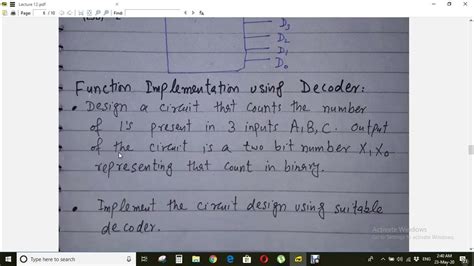 Lecture 12.pdf
8 / 10
Find:
(LSB)
D3
D2
D1
D0
Function Implementation using Decoder:
• Design a circuit that counts the number
of 1's present in 3 inputs A,B,C. Output
of the circuit is a two bit number X1X0
representing that count in binary.
• Implement the circuit design using suitable
decoder.
Activate Windows
Go to Settings to activate Windows.
Type here to search
ENG
2:40 AM
23-May-20